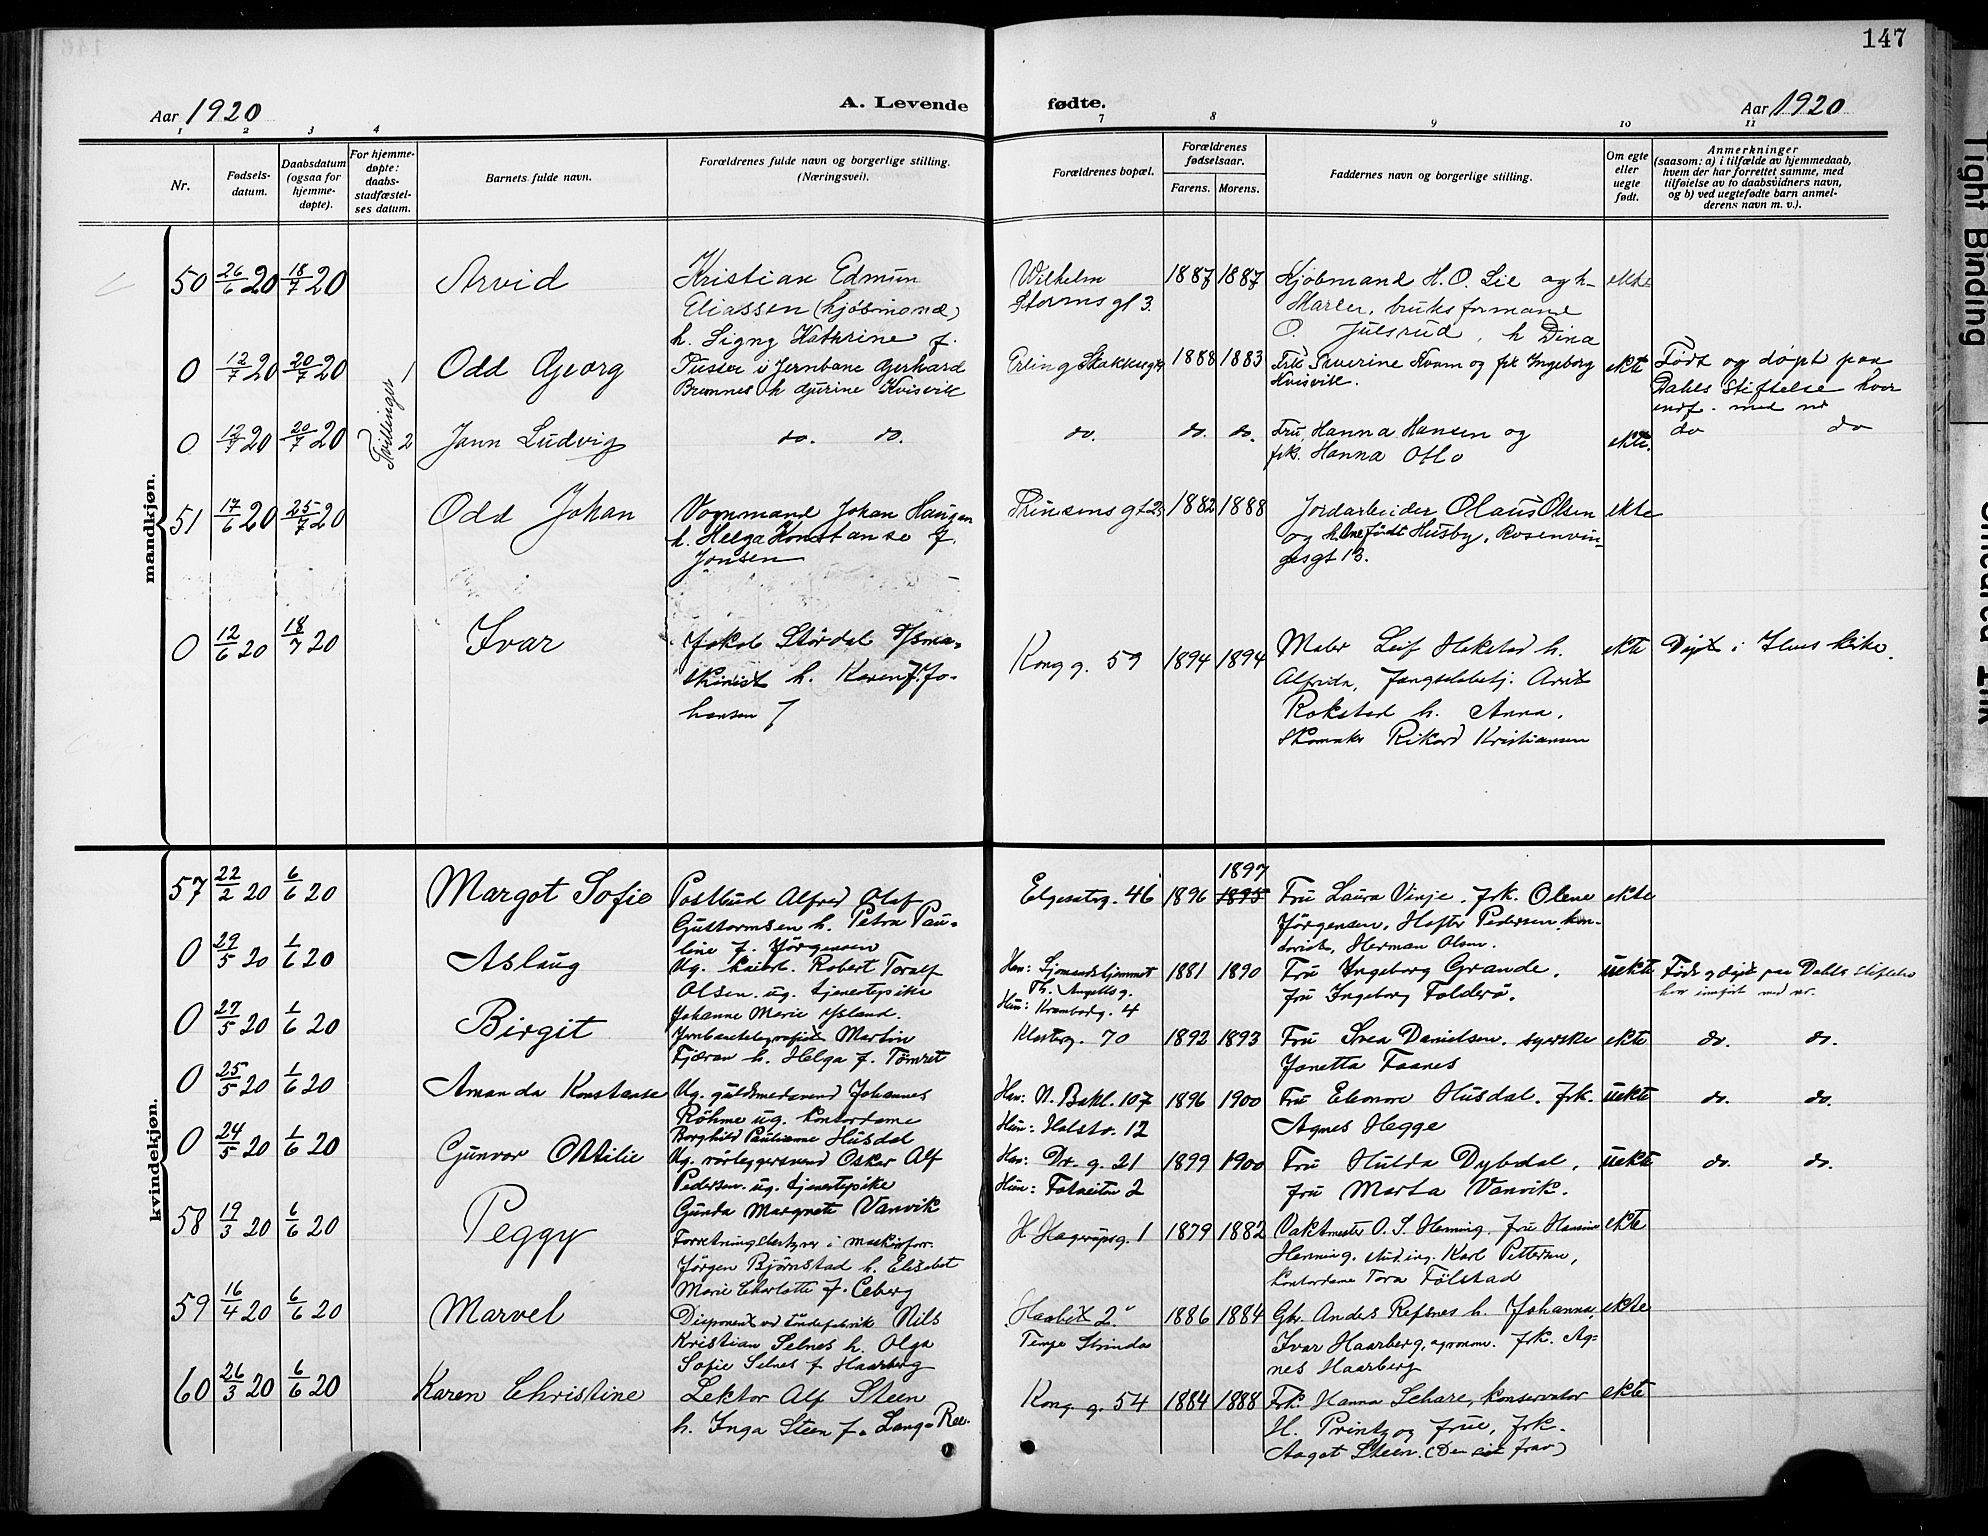 147
Aar 1920
A. Levende
fødte.
Aar 1920
1 2 3 4 7 8 9 10 11
Nr.
Fødsels-
datum.
Daabsdatum
(ogsaa for
hjemme-
døpte).
For hjemme-
døpte:
daabs-
stadfæstel-
ses datum.
Barnets fulde navn.
Forældrenes fulde navn og borgerlige stilling.
(Næringsvei).
Forældrenes bopæl.
Forældrenes
fødselsaar.
Farens. Morens.
Faddernes navn og borgerlige stilling.
Om egte
eller
uegte
født.
Anmerkninger
(saasom: a) i tilfælde av hjemmedaab,
hvem der har forrettet samme, med
tilføielse av to daabsvidners navn,
og b) ved uegtefødte barn anmel-
derens navn m. v.).
mandkjøn.
50 26/6 20 18/7 20 Arvid
Kristian Edmun
Eliassen (kjøbmand)
h. Signy Kathrine f.
Wilhelm
Storms gt 3.
1887 1887
Kjøbmand H. O. Lie og h
Marler, bruksformand
O. Julsrud, h Dina
ekte
0 12/7 20 20/7 20 Tvillinger 1 Odd Georg
Pusser i Jernbane Gerhard
Bremnes h djurine Kvisvik
Erling Skakkesgt
1888 1883
Frk Severine Kvam og frk Ingeborg
Kvisvik.
ekte
Født og døpt paa
Dahls Stiftelse hvor
indf. med nr
0 12/7 20 20/7 20 2 Jann Ludvig
do. do.
do.
do. do.
Fru Hanna Hansen og
frk. Hanna Otto
ekte.
do do
51 17/6 20 25/7 20 Odd Johan
Vognmand Johan Haugen
h. Helga Konstanse f.
Jonsen
1882 1888
Jordarbeider Olaus Olsen
og h. Ane født Husby, Rosenvin-
gesgt 13.
ekte
0 12/6 20 18/7 20 Ivar
Jakob Stördal
h. Karen f. Jo-
hansen
Kong g. 59
1894 1894
Maler Leif Hakstad h.
Alfrida, Fængselsbetj. Arnt
Rokstad h. Anna.
Skomaker Rikard Kristiansen
ekte
Døpt i Ilens kirke.
kvindekjøn.
57 22/2 20 6/6 20 Margot Sofie
Postbud Alfred Olaf
Guttormsen h. Petra Pau-
line f. Jørgensen
Elgesetrg. 46
1896 1897
1895
Fru Laura Vinje, frk. Olene
Jørgensen, Hofter Pedersen kon-
dorist, Herman Olsen.
ekte
0 29/5 20 1/6 20 Aslaug
Ug. Robert Toralf
Olsen. ug. tjenestepike
Johanne Marie Ysland.
Han: Sjømandshjemmet
Th. Angells g.
Hun: Krambodg. 4
1881 1890
Fru Ingeborg Grande.
fru Ingeborg Folderø.
uekte
Født og døpt paa Dahls stiftelse
hvor innført med nr.
0 27/5 20 1/6 20 Birgit
Jernbanetelegrafist Martin
Fjæran h. Helga f. Tømret
Klosterg. 70
1892 1893
Fru Svea Danielsen. syerske
Janetta Faanes
ekte
do. do.
0 25/5 20 1/6 20 Amanda Konstanse
Ug. guldsmedsvend Johannes
Röhme ug. kontordame
Borghild Paulianne Husdal
Han: N. Bakl. 107
Hun: Halstv. 12
1896 1900
Fru Eleonore Husdal. frk.
Agnes Hegge
uekte
do. do.
0 24/5 20 1/6 20 Gunvor Ottilie
Ug. rørleggersvend Oskar Alf
Pedersen. ug. tjenestepike
Gunda Margrete Vanvik
Han: Dr. g. 21
Hun: Fotveiten 2
1899 1900
Fru Hulda Dybdal.
fru Marta Vanvik.
uekte
do. do.
58 19/3 20 6/6 20 Peggy
Forretningsbestyrer i maskinforr.
Jørgen Bjørnstad h. Elisabet
Marie Charlotte f. Ceberg
H. Hagerupsg. 1
1879 1882
Vaktmester O. S. Herning. fru Hansine
Herning. stud ing. Karl Pettersen,
kontordame Tora Følstad
ekte
59 16/4 20 6/6 20 Marvel
Disponent ved tøndefabrik Nils
Kristian Selnes h. Olga
Sofie Selnes f. Haarberg
Tempe Strinda
1886 1884
Gb. Anders Refsnes h. Johanna,
Ivar Haarberg, agronom. frk. Ag-
nes Haarberg
ekte
60 26/3 20 6/6 20 Karen Christine
Lektor Alf Steen
h. Inga Steen f. Lang-Ree.
Kong g. 54
1884 1888
Frk. Hanna Schare, konservator
H. Printz og frue, frk.
Aagot Steen. (Den siste frav)
ekte
Tight Binding